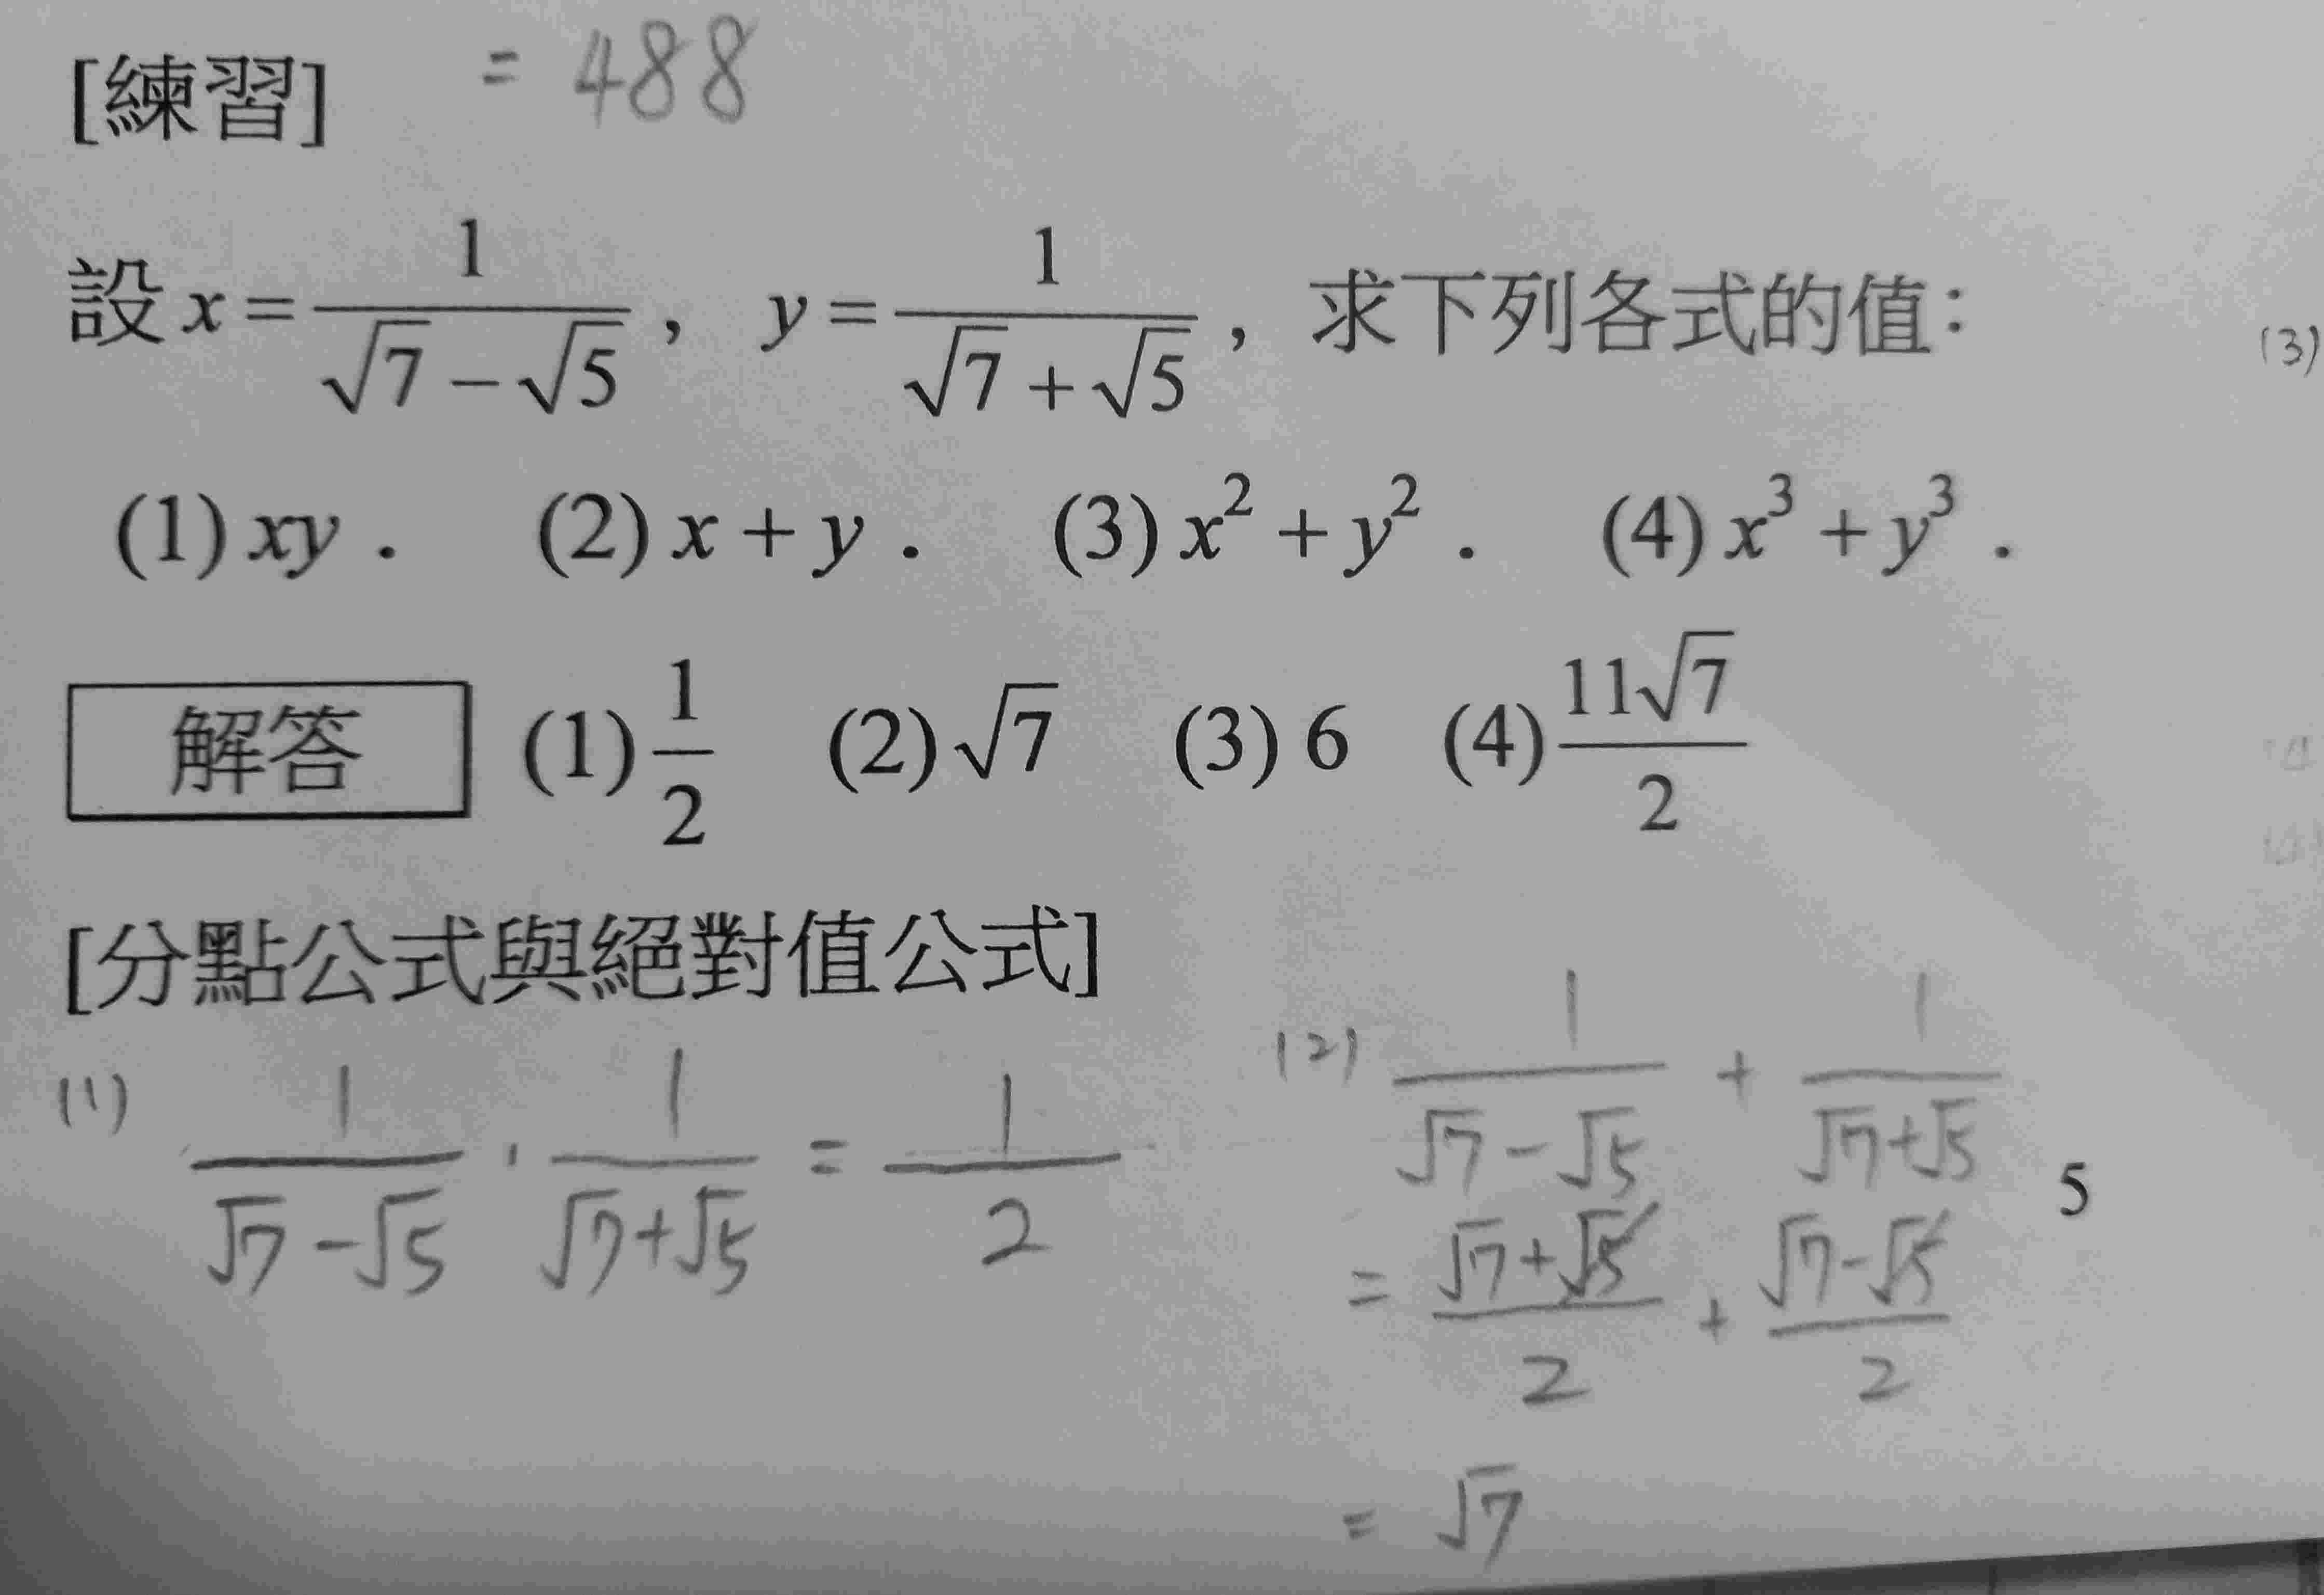 [練習] = 488
設 x = 1/(√7 − √5), y = 1/(√7 + √5), 求下列各式的值:
(3)
(1) xy . (2) x + y . (3) x² + y² . (4) x³ + y³ .
解答 (1) 1/2 (2) √7 (3) 6 (4) 11√7/2
[分點公式與絕對值公式]
(1) 1/(√7 − √5) · 1/(√7 + √5) = 1/2
(2) 1/(√7 − √5) + 1/(√7 + √5)
5
= (√7 + √5)/2 + (√7 − √5)/2
= √7